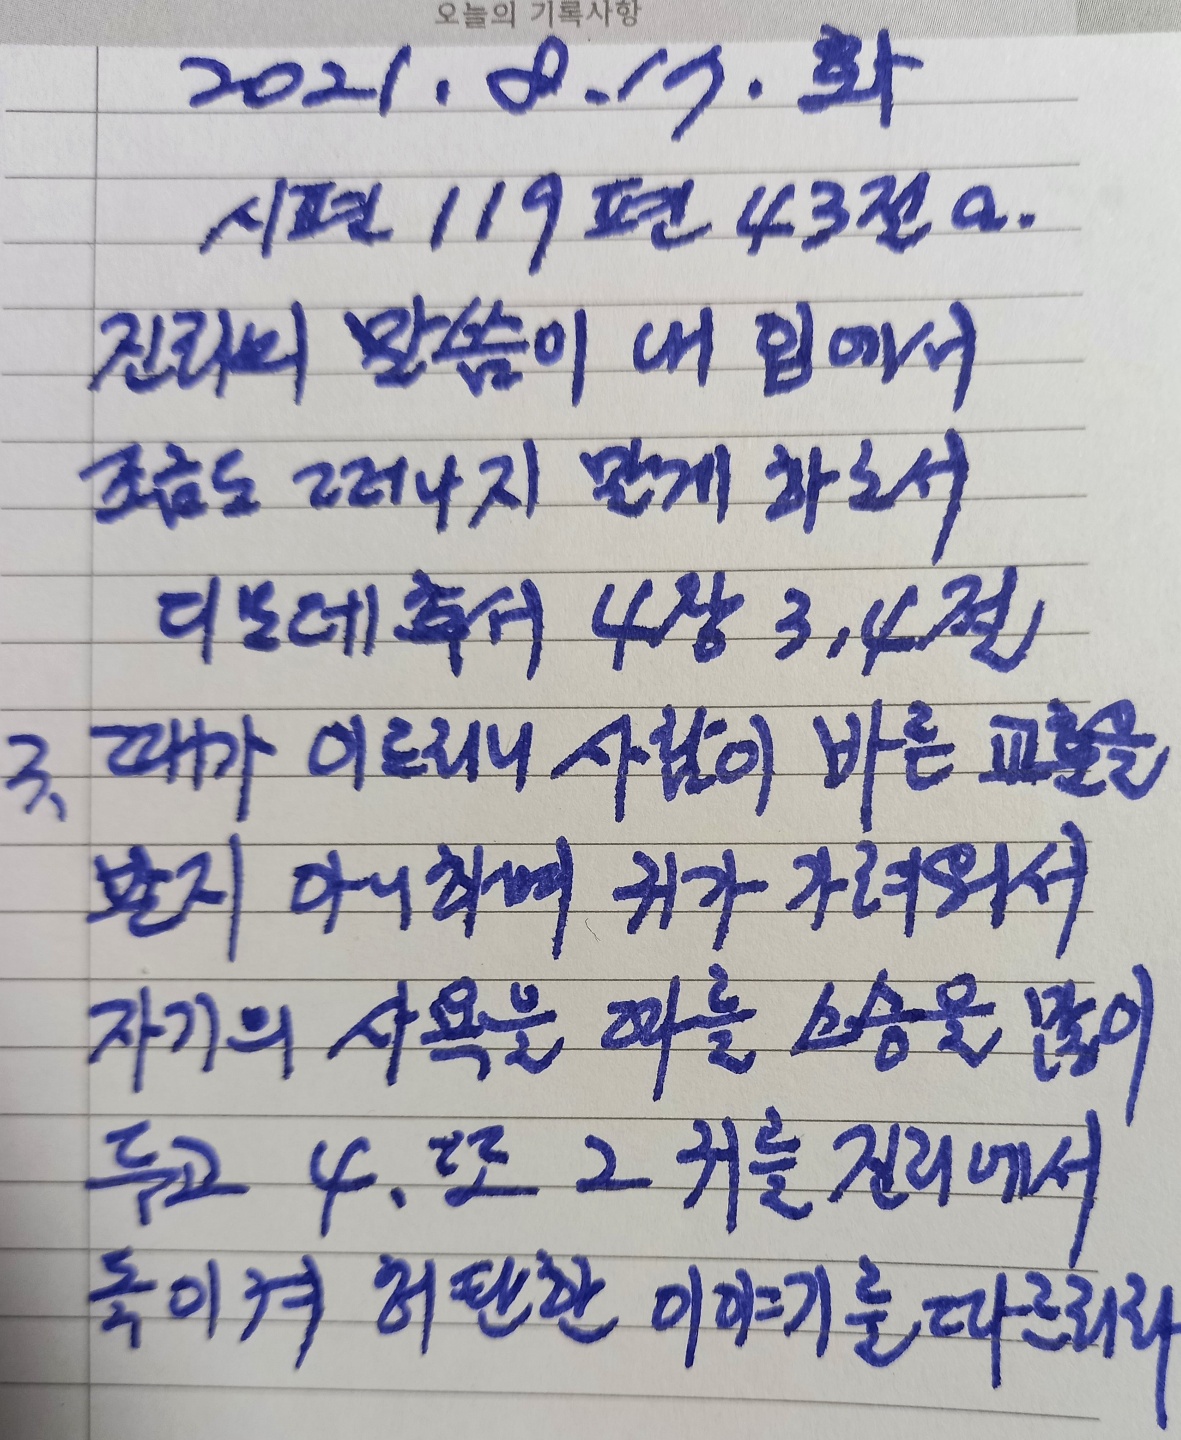 오늘의 기록사항
2021. 8. 17. 화
시편 119편 43절 a.
진리의 말씀이 내 입에서
조금도 떠나지 말게 하소서
디모데후서 4장 3, 4절
3. 때가 이르리니 사람이 바른 교훈을
받지 아니하며 귀가 가려워서
자기의 사욕을 따를 스승을 많이
두고 4. 또 그 귀를 진리에서
돌이켜 허탄한 이야기를 따르리라